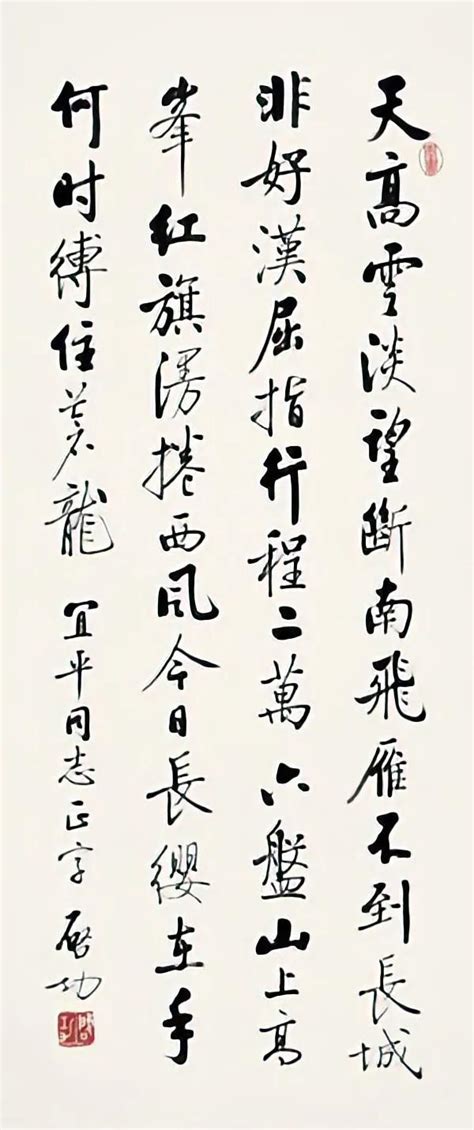 天高雲淡望斷南飛雁不到長城
非好漢屈指行程二萬六盤山上高
峯红旗漫捲西風今日長纓在手
何时縛住蒼龍 宜平同志正字 啓功
啓功